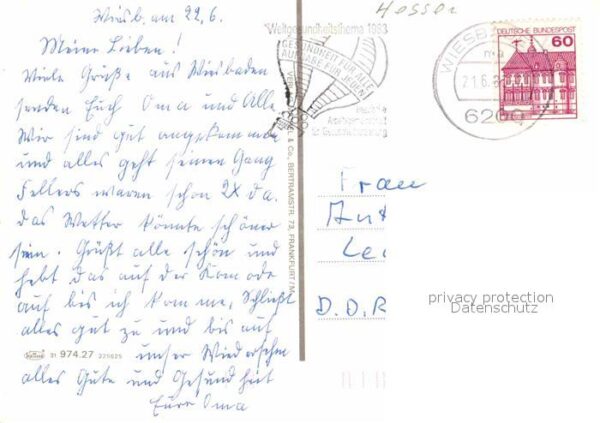 Wiesb. am 22.6.
Meine Lieben!
Viele Grüße aus Wiesbaden
senden Euch Oma und Alle
Wir sind gut angekommen
und alles geht seinen Gang
Fellers waren schon 2x da.
das Wetter könnte schöner
sein. Grüßt alle schön und
hebt das auf der Komode
auf bis ich komme, Schließt
alles gut zu und bis auf
unser Wiedersehn
alles Gute und Gesundheit
Eure Oma
31 974.27 225825
& Co., BERTRAMSTR. 73, FRANKFURT/M
Hessen
Weltgesundheitsthema 1983
GESUNDHEIT FÜR ALLE
AUFGABE FÜR JEDEN
für Gesundheitserziehung
WIESB
21.6.8
6200
DEUTSCHE BUNDESPOST
60
Frau
Ant
Lei
D.D.R
privacy protection
Datenschutz